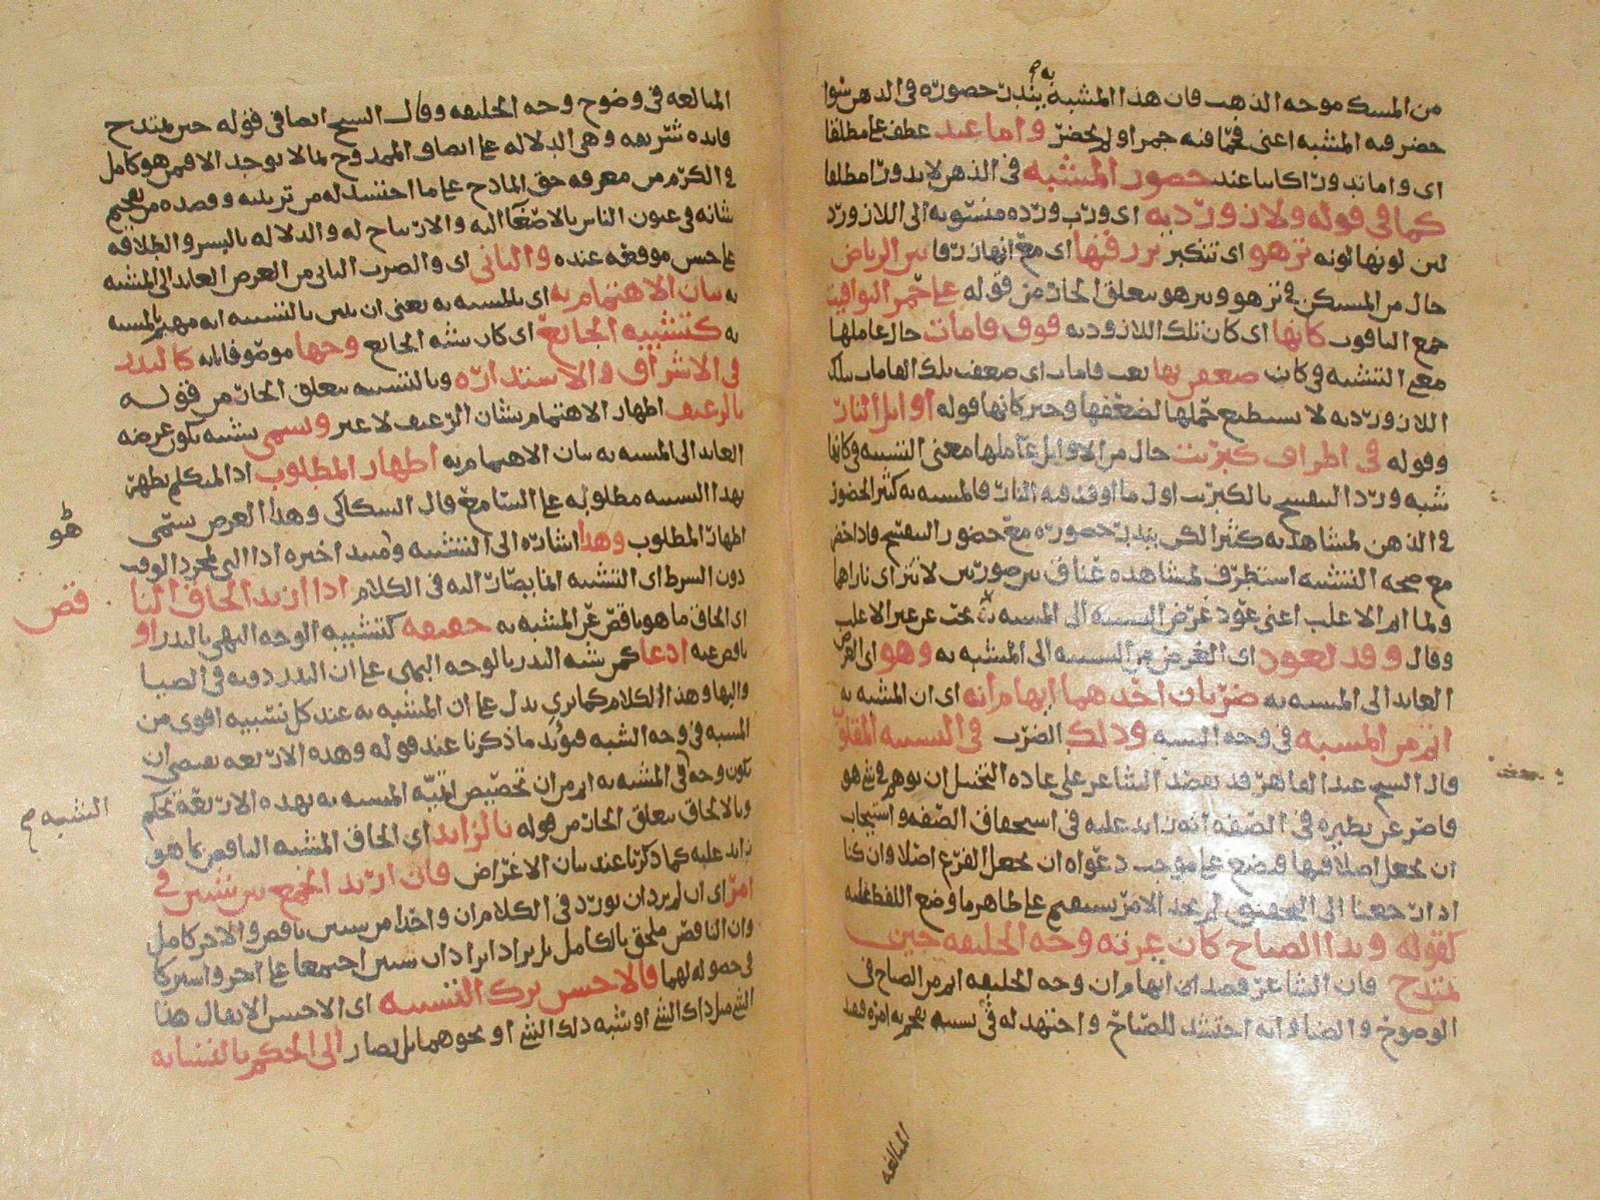 من المسك موجه الذهب فان هذا المشبه يندر حصوره فى الذهن سوا
حضر فيه المشبه اعنى فحما فيه جمر اولم يحضر واما عند عطف على مطلقا
اى واما يندر كاينا عند حصور المشبه فى الذهن لا يندر مطلقا
كما فى قوله ولازورديه اى ورب ورده منسوبه الى اللازورد
لمن لونها لونه تزهو اى تتكبر بزرقتها اى مع انها زرقا بين الرياض
حال من المسكن فى تزهو وبيزهو يتعلق الجار من قوله على حمر اليواقيت
جمع الياقوت كانها اى كان تلك اللازورديه فوق قامات حال عاملها
معنى التشبيه فى كان ضعفن بها نعت قامات اى ضعفت تلك القامات بتلك
اللازورديه لا يستطيع حملها لضعفها وخبر كانها قوله اوايل النار
وقوله فى اطراف كبريت حال من الاوايل عاملها معنى التشبيه فى كانها
شبه ورد البنفسج بالكبريت اول ما اوقد فيه النار فالمشبه به كثير الحضور
فى الذهن لمشاهدته كثيرا لكن يندر حصوره مع حضور البنفسج فاذا احضر
مع صحه التشبيه استظرف لمشاهده عناق بين صورتين لا تتراى ناراهما
ولما اتم الاغلب اعنى عود غرض التشبيه الى المشبه بحث عن غير الاغلب
وقال وقد يعود اى الغرض من التشبيه الى المشبه به وهو اى الغرض
العايد الى المشبه به ضربان احدهما ايهام انه اى ان المشبه به
اتم من المشبه فى وجه الشبه وذلك الضرب فى التشبيه المقلوب
قال الشيخ عبد القاهر قد يقصد الشاعر على عاده التخييل ان يوهم فى شى هو
قاصر عن نظيره فى الصفه انه زايد عليه فى استحقاق الصفه واستيجاب
ان يجعل اصلا فيها فيضع على موجب دعواه ان يجعل الفرع اصلا وان كنا
اذا رجعنا الى التحقيق لم نجد الامر يستقيم على ظاهر ما وضع اللفظ عليه
كقوله وبدا الصباح كان غرته وجه الخليفه حين
يمتدح فان الشاعر قصد ايهام ان وجه الخليفه اتم من الصباح فى
الوضوح والضياء انه احتشد للصباح واجتهد له فى تشبيه
المبالغه
المبالغه فى وضوح وجه الخليفه وقال الشيخ ايضا فى قوله حين يمتدح
فايده شريفه وهى الدلاله على اتصاف الممدوح بما لا يوجد الا فيمن هو كامل
فى الكرم من معرفه حق المادح على ما احتشد له من تزيينه وقصده من تفخيم
شانه فى عيون الناس بالاصغا اليه والارتياح له والدلاله بالبشر والطلاقه
على حسن موقعه عنده والثانى اى والضرب الثانى من الغرض العايد الى المشبه
به بيان الاهتمام به اى بالمشبه به يعنى ان يبين بالتشبيه انه مهتم بالمشبه
به كتشبيه الجايع اى كان يشبه الجايع وجها موصوفا بانه كالبدر
فى الاشراق والاستداره وبالتشبيه يتعلق الجار من قوله
بالرغيف اظهار الاهتمام بشان الرغيف لا غير ويسمى تشبيه يكون غرضه
العايد الى المشبه به بيان الاهتمام به اظهار المطلوب اذ المتكلم يظهر
بهذا التشبيه مطلوبه على السامع قال السكاكى وهذا الغرض يسمى
اظهار المطلوب وهذا اشاره الى التشبيه ومبتدا خبره اذا التى لمجرد الوقت
دون الشرط اى التشبيه انما يصار اليه فى الكلام اذا اريد الحاق النا
قص
اى الحاق ما هو ناقص عن المشبه به حقيقه كتشبيه الوجه البهى بالبدر او
ناقص عنه ادعا كمن شبه البدر بالوجه البهى على ان البدر دونه فى الضيا
والبها وهذا الكلام كما ترى يدل على ان المشبه به عند كل تشبيه اقوى من
المشبه فى وجه الشبه فيويد ما ذكرنا عند قوله وهذه الاربعه يقتضى ان
يكون وجه فى المشبه به اتم من ان تخصيص اتميه المشبه به بهذه الاربعه تحكم
التشبيه
وبالالحاق يتعلق الجار من قوله بالزايد اى الحاق المشبه الناقص كما هو
زايد عليه كما ذكرنا عند بيان الاغراض فان اريد الجمع بين شيين فى
امر اى ان لم يرد ان يورد فى الكلام ان واحدا من شيين ناقص والاخر كامل
وان الناقص ملحق بالكامل بل يراد ايراد ان شيين اجتمعا على اخر واشتركا
فى حصوله لهما فالاحسن ترك التشبيه اى الاحسن الا يقال هذا
الشى مثل ذاك الشى او شبه ذلك الشى او نحوهما بل يصار الى الحكم بالتشابه